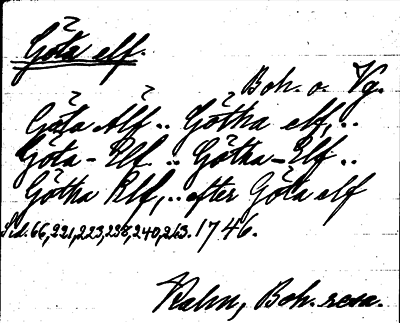 Göta elf.
Boh. o. Vg.
Göta Älf .. Götha elf, ..
Göta-Elf .. Götha-Elf ..
Götha Elf, .. efter Göta elf
Sid. 66, 221, 223, 238, 240, 263. 1746.
Kalm, Boh. resa.